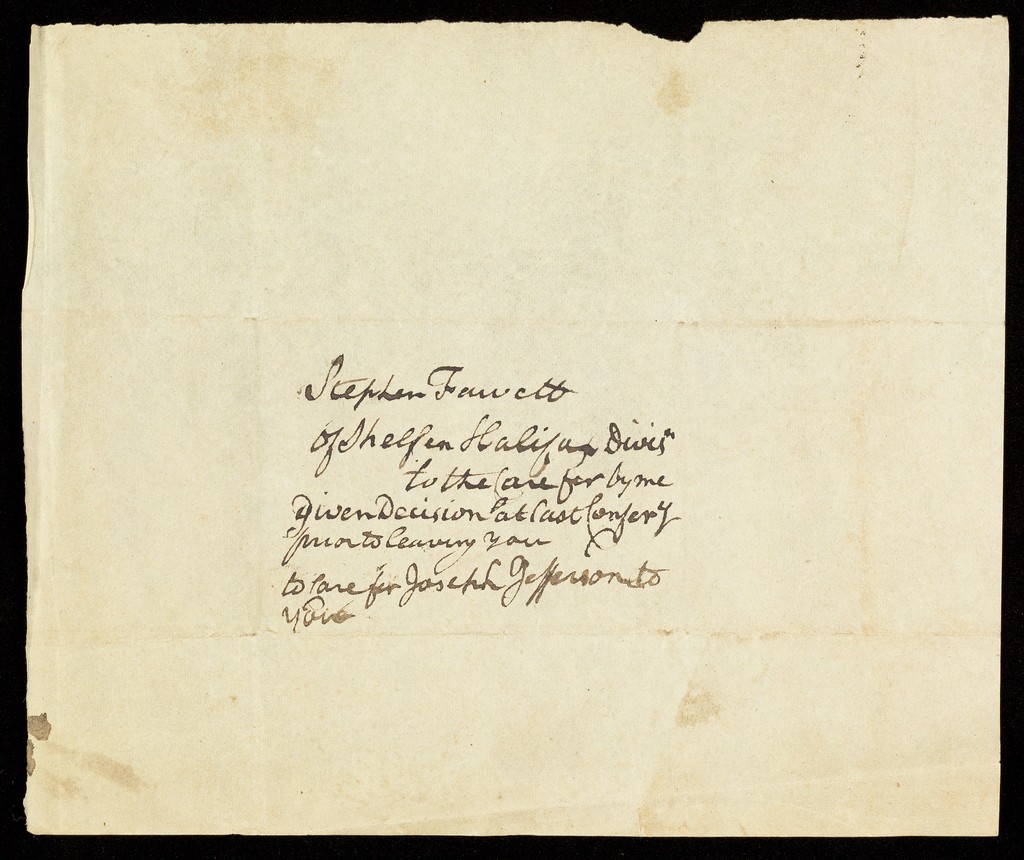 Stephen Fawcett
of Shelfen Halifax Divisn
to the Care for by me
Given Decision at Last Confery
prior to leaving you
to Care for Joseph Jefferson to
you